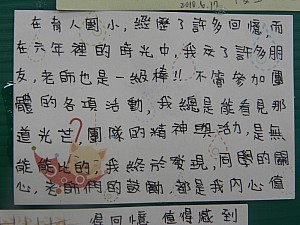 2010.6.17
在育人國小,經歷了許多回憶,而
在六年裡的時光中,我交了許多朋
友,老師也是一級棒!!不管參加團
體的各項活動,我總是能看見那
道光芒?團隊的精神與活力,是無
能能比的,我終於發現,同學的關
心,老師們的鼓勵,都是我內心值
得回憶 值得感到